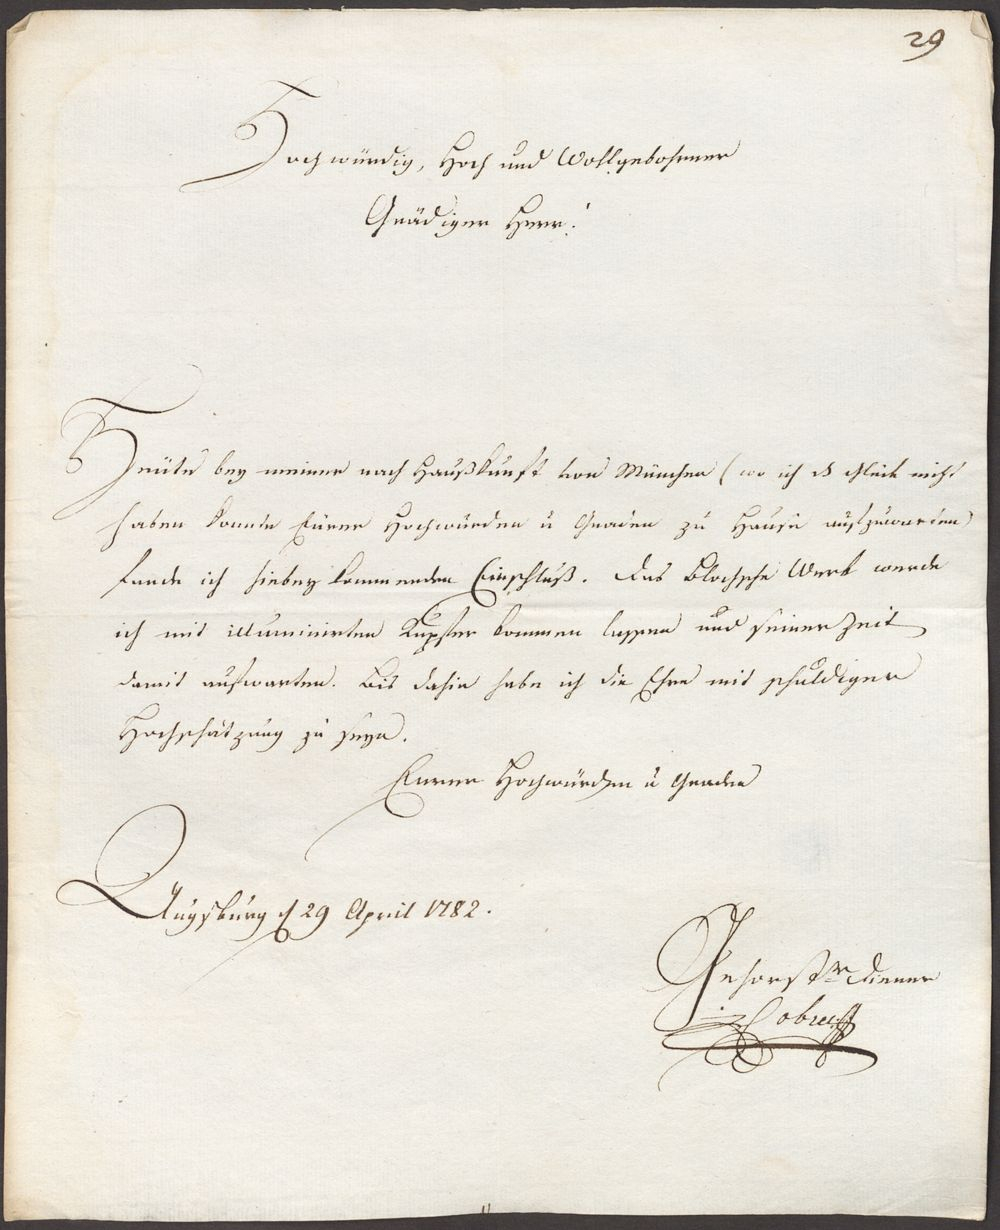 29
Hochwürdig, Hoch und Wohlgebohrner
Gnädiger Herr!
Heüte bey meiner nach Haußkunft von München (wo ich das Glück nicht
haben konnte Eürer Hochwürden u Gnaden zu Hause aufzuwarten)
fande ich hiebey kommenden Einschluß. Das Blochsche Werk werde
ich mit illuminirten Kupfer kommen lassen und seiner Zeit
damit aufwarten. Bis dahin habe ich die Ehre mit schuldiger
Hochschätzung zu seyn.
Eurer Hochwürden u Gnaden
Augsburg d 29 April 1782.
Gehorstr Diener
Cobres